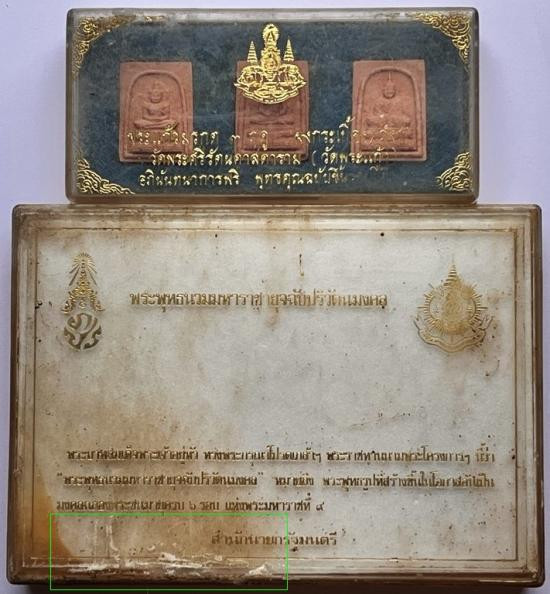 พระแก้วมรกต ๓ ฤดู
วัดพระศรีรัตนศาสดาราม ( วัดพระแก้ว )
อภินันทนาการฟรี พุทธคุณฉบับ
พระพุทธนวมมหาราชายุจฉัปริวัตนมงคล
พระบาทสมเด็จพระเจ้าอยู่หัว ทรงพระกรุณาโปรดเกล้าฯ พระราชทานนามพระโครงการฯ นี้ว่า
"พระพุทธนวมมหาราชายุจฉัปริวัตนมงคล" หมายถึง พระพุทธรูปที่สร้างขึ้นในโอกาสอันเป็น
มงคลเฉลิมพระชนมายุครบ ๖ รอบ แห่งพระมหาราชที่ ๙
สำนักนายกรัฐมนตรี